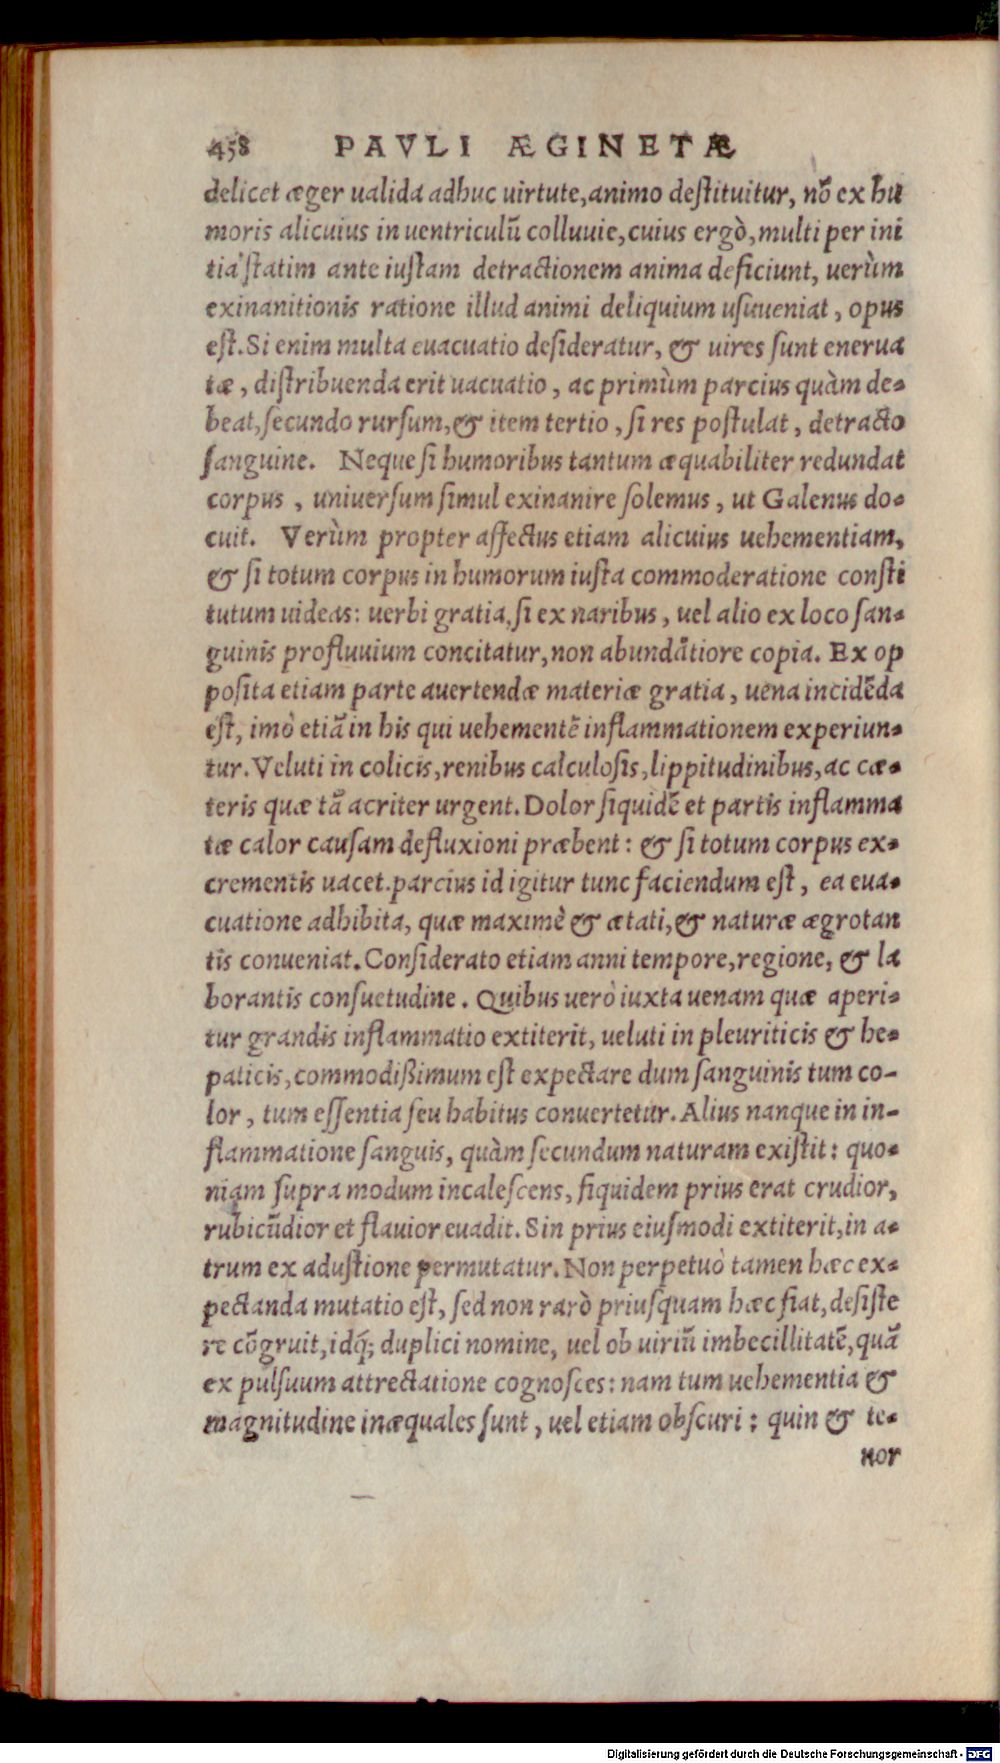 458 PAVLI ÆGINETÆ
delicet æger ualida adhuc uirtute, animo destituitur, nõ ex hu
moris alicuius in uentriculũ colluuie, cuius ergò, multi per ini
tia statim ante iustam detractionem anima deficiunt, uerùm
exinanitionis ratione illud animi deliquium usuueniat, opus
est. Si enim multa euacuatio desideratur, & uires sunt enerua
tæ, distribuenda erit uacuatio, ac primùm parcius quàm de-
beat, secundo rursum, & item tertio, si res postulat, detracto
sanguine. Neque si humoribus tantum æquabiliter redundat
corpus, uniuersum simul exinanire solemus, ut Galenus do-
cuit. Verùm propter affectus etiam alicuius uehementiam,
& si totum corpus in humorum iusta commoderatione consti
tutum uideas: uerbi gratia, si ex naribus, uel alio ex loco san-
guinis profluuium concitatur, non abundãtiore copia. Ex op
posita etiam parte auertendæ materiæ gratia, uena incidẽda
est, imò etiã in his qui uehementẽ inflammationem experiun-
tur. Veluti in colicis, renibus calculosis, lippitudinibus, ac cæ-
teris quæ tã acriter urgent. Dolor siquidẽ et partis inflamma
tæ calor causam defluxioni præbent: & si totum corpus ex-
crementis uacet. parcius id igitur tunc faciendum est, ea eua-
cuatione adhibita, quæ maximè & ætati, & naturæ ægrotan
tis conueniat. Considerato etiam anni tempore, regione, & la
borantis consuetudine. Quibus uerò iuxta uenam quæ aperi-
tur grandis inflammatio extiterit, ueluti in pleuriticis & he-
paticis, commodißimum est expectare dum sanguinis tum co-
lor, tum essentia seu habitus conuertetur. Alius nanque in in-
flammatione sanguis, quàm secundum naturam existit: quo-
niam supra modum incalescens, siquidem prius erat crudior,
rubicũdior et flauior euadit. Sin prius eiusmodi extiterit, in a-
trum ex adustione permutatur. Non perpetuò tamen hæc ex-
pectanda mutatio est, sed non rarò priusquam hæc fiat, desiste
re cõgruit, idq́; duplici nomine, uel ob uiriũ imbecillitatẽ, quã
ex pulsuum attrectatione cognosces: nam tum uehementia &
magnitudine inæquales sunt, uel etiam obscuri: quin & te-
nor
Digitalisierung gefördert durch die Deutsche Forschungsgemeinschaft - DFG